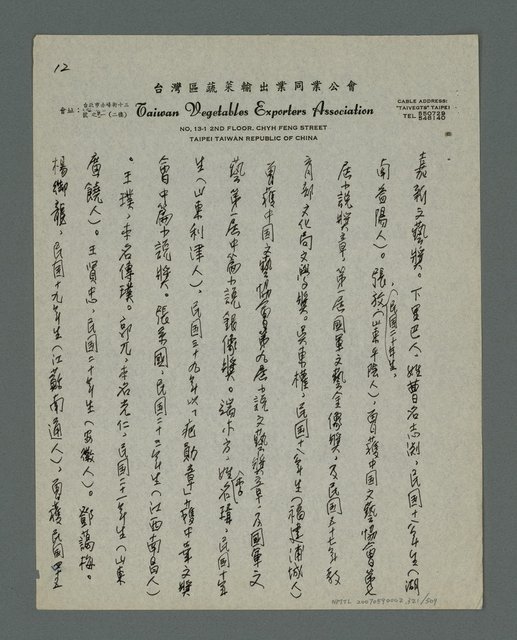 12
台灣區蔬菜輸出業同業公會
會址：台北市赤峰街十三號之一(二樓)
Taiwan Vegetables Exporters Association
CABLE ADDRESS:
"TAIVEGTS" TAIPEI
TEL
NO. 13-1 2ND FLOOR. CHYH FENG STREET
TAIPEI TAIWAN REPUBLIC OF CHINA
嘉新文藝獎。下里巴人，姓曹名志淵，民国十八年生（湖
南益陽人）。張放，（民国二十年生，山東平陰人），曾獲中国文藝協會第七
屆小說獎章，第一屆國軍文藝金像獎，及民国五十七年教
育部文化局文學獎。吳東權，民国十八年生（福建莆城人）
曾獲中国文藝協會第九屆小說文藝獎章，及國軍文
藝第一屆中篇小說銀像獎。端木方，姓名瑋，民国十年
生（山東利津人），民国三十九年以「疤勳章」獲中華文獎
會中篇小說獎。張英國，民国二十三年生（江西南昌人）
。王璞，本名傳璞。郭光仁，民国二十一年生（山東
廣饒人）。王賢忠，民国二十年生（安徽人）。鄧藹梅。
楊御龍，民国十九年生（江蘇南通人），曾獲民国四十
NMTL 20070590002 321/504